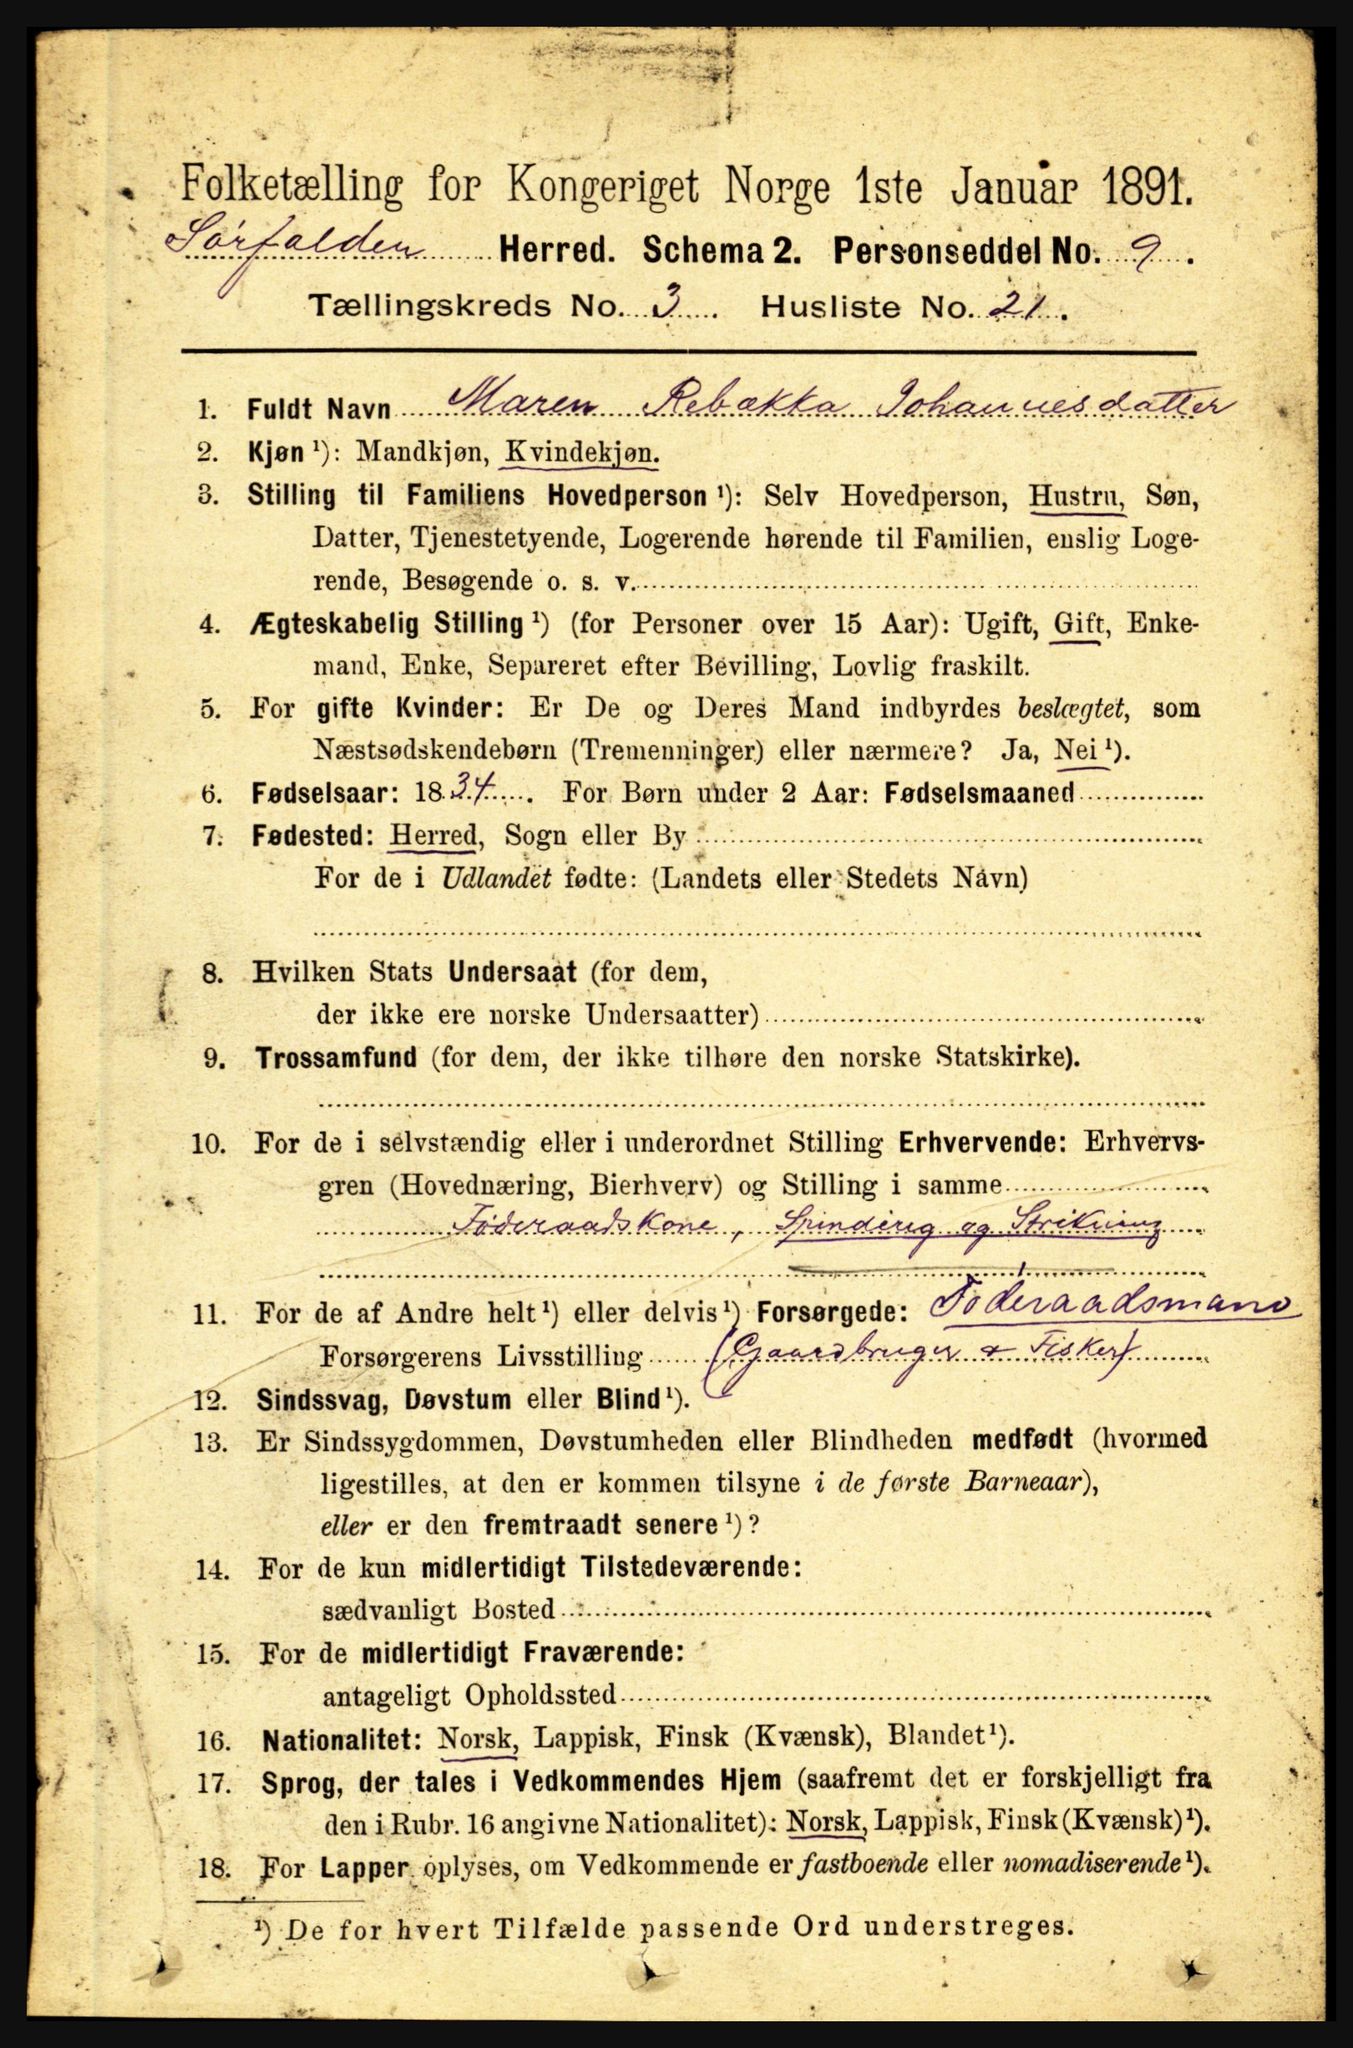 Folketælling for Kongeriget Norge 1ste Januar 1891.
Sørfolden Herred. Schema 2. Personseddel No. 9.
Tællingskreds No. 3. Husliste No. 21.
1. Fuldt Navn Maren Rebækka Johannesdatter
2. Kjøn ¹): Mandkjøn, Kvindekjøn.
3. Stilling til Familiens Hovedperson ¹): Selv Hovedperson, Hustru, Søn,
Datter, Tjenestetyende, Logerende hørende til Familien, enslig Loge-
rende, Besøgende o. s. v.
4. Ægteskabelig Stilling ¹) (for Personer over 15 Aar): Ugift, Gift, Enke-
mand, Enke, Separeret efter Bevilling, Lovlig fraskilt.
5. For gifte Kvinder: Er De og Deres Mand indbyrdes beslægtet, som
Næstsødskendebørn (Tremenninger) eller nærmere? Ja, Nei ¹).
6. Fødselsaar: 1834. For Børn under 2 Aar: Fødselsmaaned
7. Fødested: Herred, Sogn eller By
For de i Udlandet fødte: (Landets eller Stedets Navn)
8. Hvilken Stats Undersaat (for dem,
der ikke ere norske Undersaatter)
9. Trossamfund (for dem, der ikke tilhøre den norske Statskirke).
10. For de i selvstændig eller i underordnet Stilling Erhvervende: Erhvervs-
gren (Hovednæring, Bierhverv) og Stilling i samme
Føderaadskone, Spinding og Strikning
11. For de af Andre helt ¹) eller delvis ¹) Forsørgede: Føderaadsmand
Forsørgerens Livsstilling (Gaardbruger & Fisker)
12. Sindssvag, Døvstum eller Blind ¹).
13. Er Sindssygdommen, Døvstumheden eller Blindheden medfødt (hvormed
ligestilles, at den er kommen tilsyne i de første Barneaar),
eller er den fremtraadt senere ¹)?
14. For de kun midlertidigt Tilstedeværende:
sædvanligt Bosted
15. For de midlertidigt Fraværende:
antageligt Opholdssted
16. Nationalitet: Norsk, Lappisk, Finsk (Kvænsk), Blandet ¹).
17. Sprog, der tales i Vedkommendes Hjem (saafremt det er forskjelligt fra
den i Rubr. 16 angivne Nationalitet): Norsk, Lappisk, Finsk (Kvænsk) ¹).
18. For Lapper oplyses, om Vedkommende er fastboende eller nomadiserende ¹).
¹) De for hvert Tilfælde passende Ord understreges.